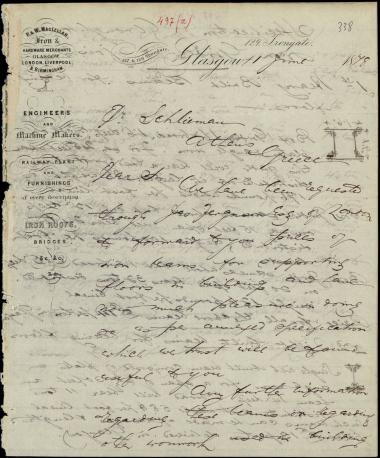 497(a)
338
P. & W. MACLELLAN,
Iron &
HARDWARE MERCHANTS
GLASGOW
LONDON, LIVERPOOL
& BIRMINGHAM
129, Trongate,
Glasgow 11 June 1878
ENGINEERS
AND
Machine Makers.
RAILWAY PLANT
AND
FURNISHINGS
of every description
IRON ROOFS,
BRIDGES
&c. &c.
Dr Schlieman
Athens
Greece
Dear Sir
We have been requested
through Jas Ferguson Esq of London
to forward to you prices of
iron beams for supporting
floors in buildings and have
much pleasure in doing
so as per annexed specification
which we trust will be found
useful to you
Any further information
regarding these beams or regarding
other ironwork used in building